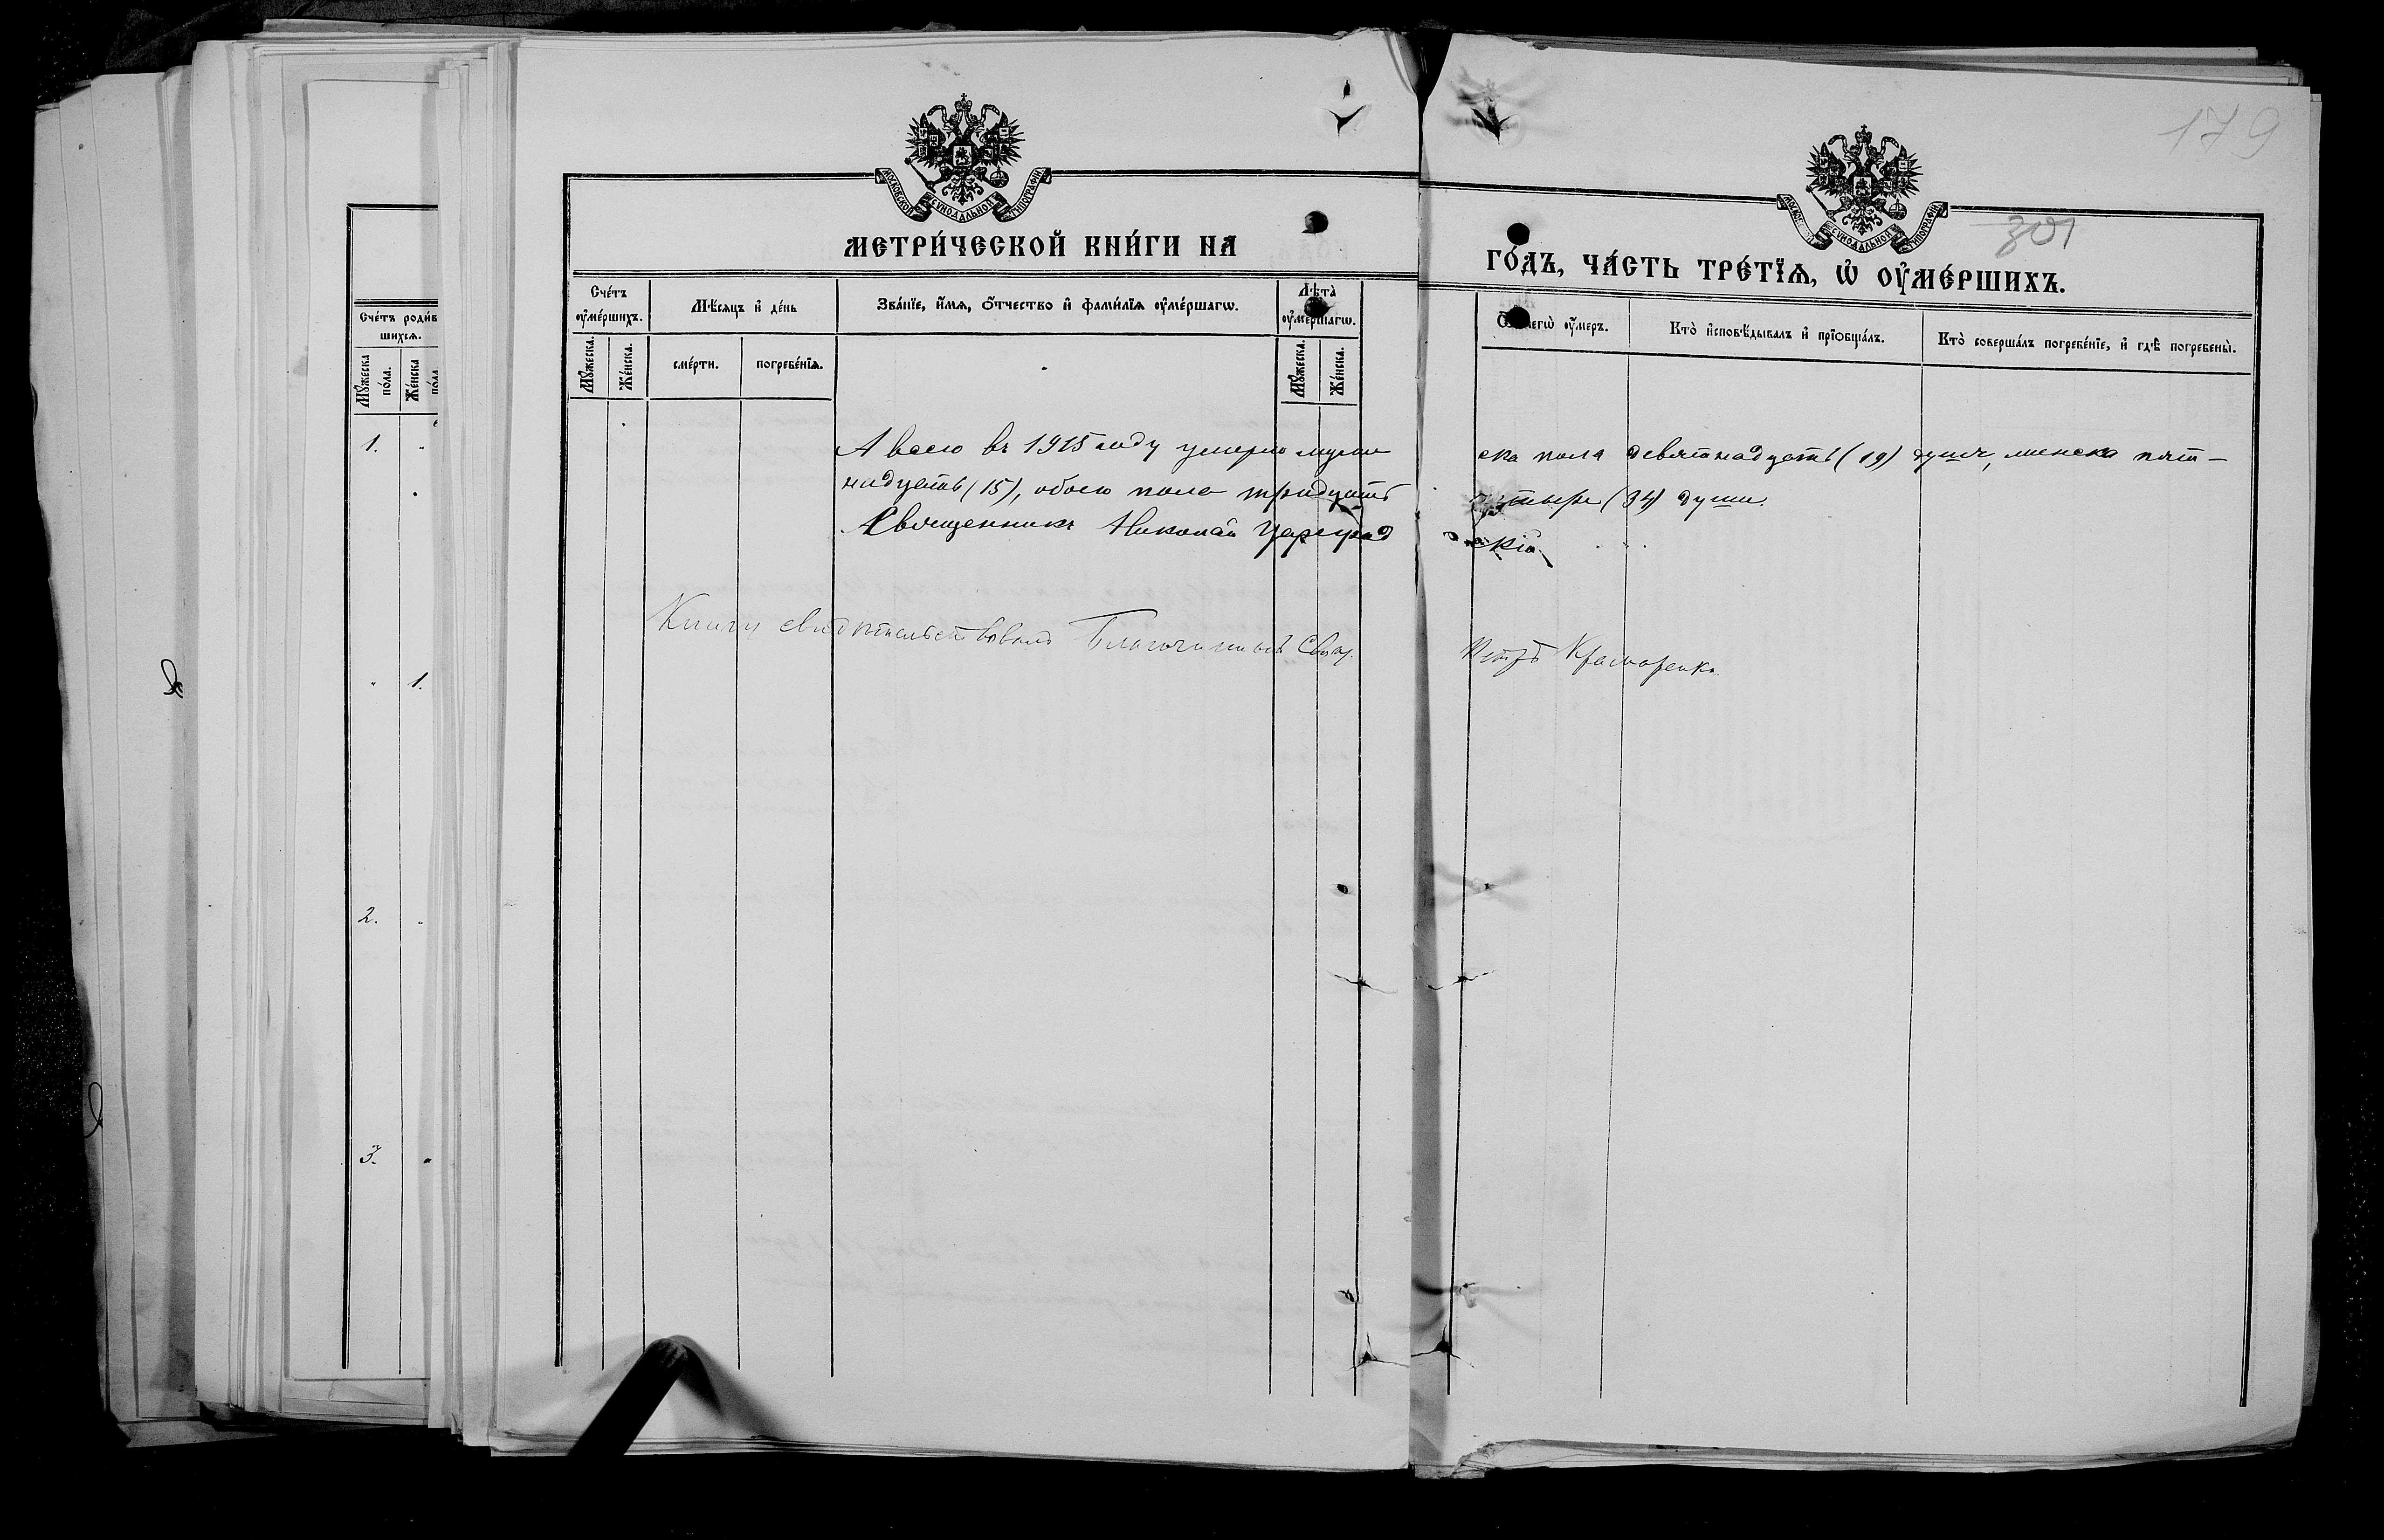 179
301
МОСКОВСКОЙ СѴНОДАЛЬНОЙ ТИПОГРАФІИ
МОСКОВСКОЙ СѴНОДАЛЬНОЙ ТИПОГРАФІИ
МЕТРИ́ЧЕСКОЙ КНИ́ГИ НА ГО́ДЪ, ЧА́СТЬ ТРЕ́ТЇѦ, Ѡ҆ ОУ҆МЕ́РШИХЪ.
Сче́тъ оу҆ме́ршихъ.
Мѣ́сѧцъ и҆ де́нь
Зва́нїе, и҆́мѧ, ѻ҆́тчество и҆ фами́лїѧ оу҆ме́ршагѡ.
Лѣ́та оу҆ме́ршагѡ.
Ѿ чегѡ̀ оу҆́меръ.
Кто̀ и҆сповѣ́дывалъ и҆ прїѡбща́лъ.
Кто̀ соверша́лъ погребе́нїе, и҆ гдѣ̀ погребены̀.
Мꙋ́жеска.
Же́нска.
сме́рти.
погребе́нїѧ.
Мꙋ́жеска.
Же́нска.
А всего въ 1915 году умерло мужеска пола девятнадцать (19) душъ, женска пят-
надцать (15), обоего пола тридцать четыре (34) души.
Священникъ Николай Цареградскій
Книгу свидѣтельствовалъ Благочинный Свящ. Петръ Крамаренко
Сче́тъ роди́вшихсѧ.
Мꙋ́жеска по́ла.
Же́нска по́ла
1.
1.
2.
3.